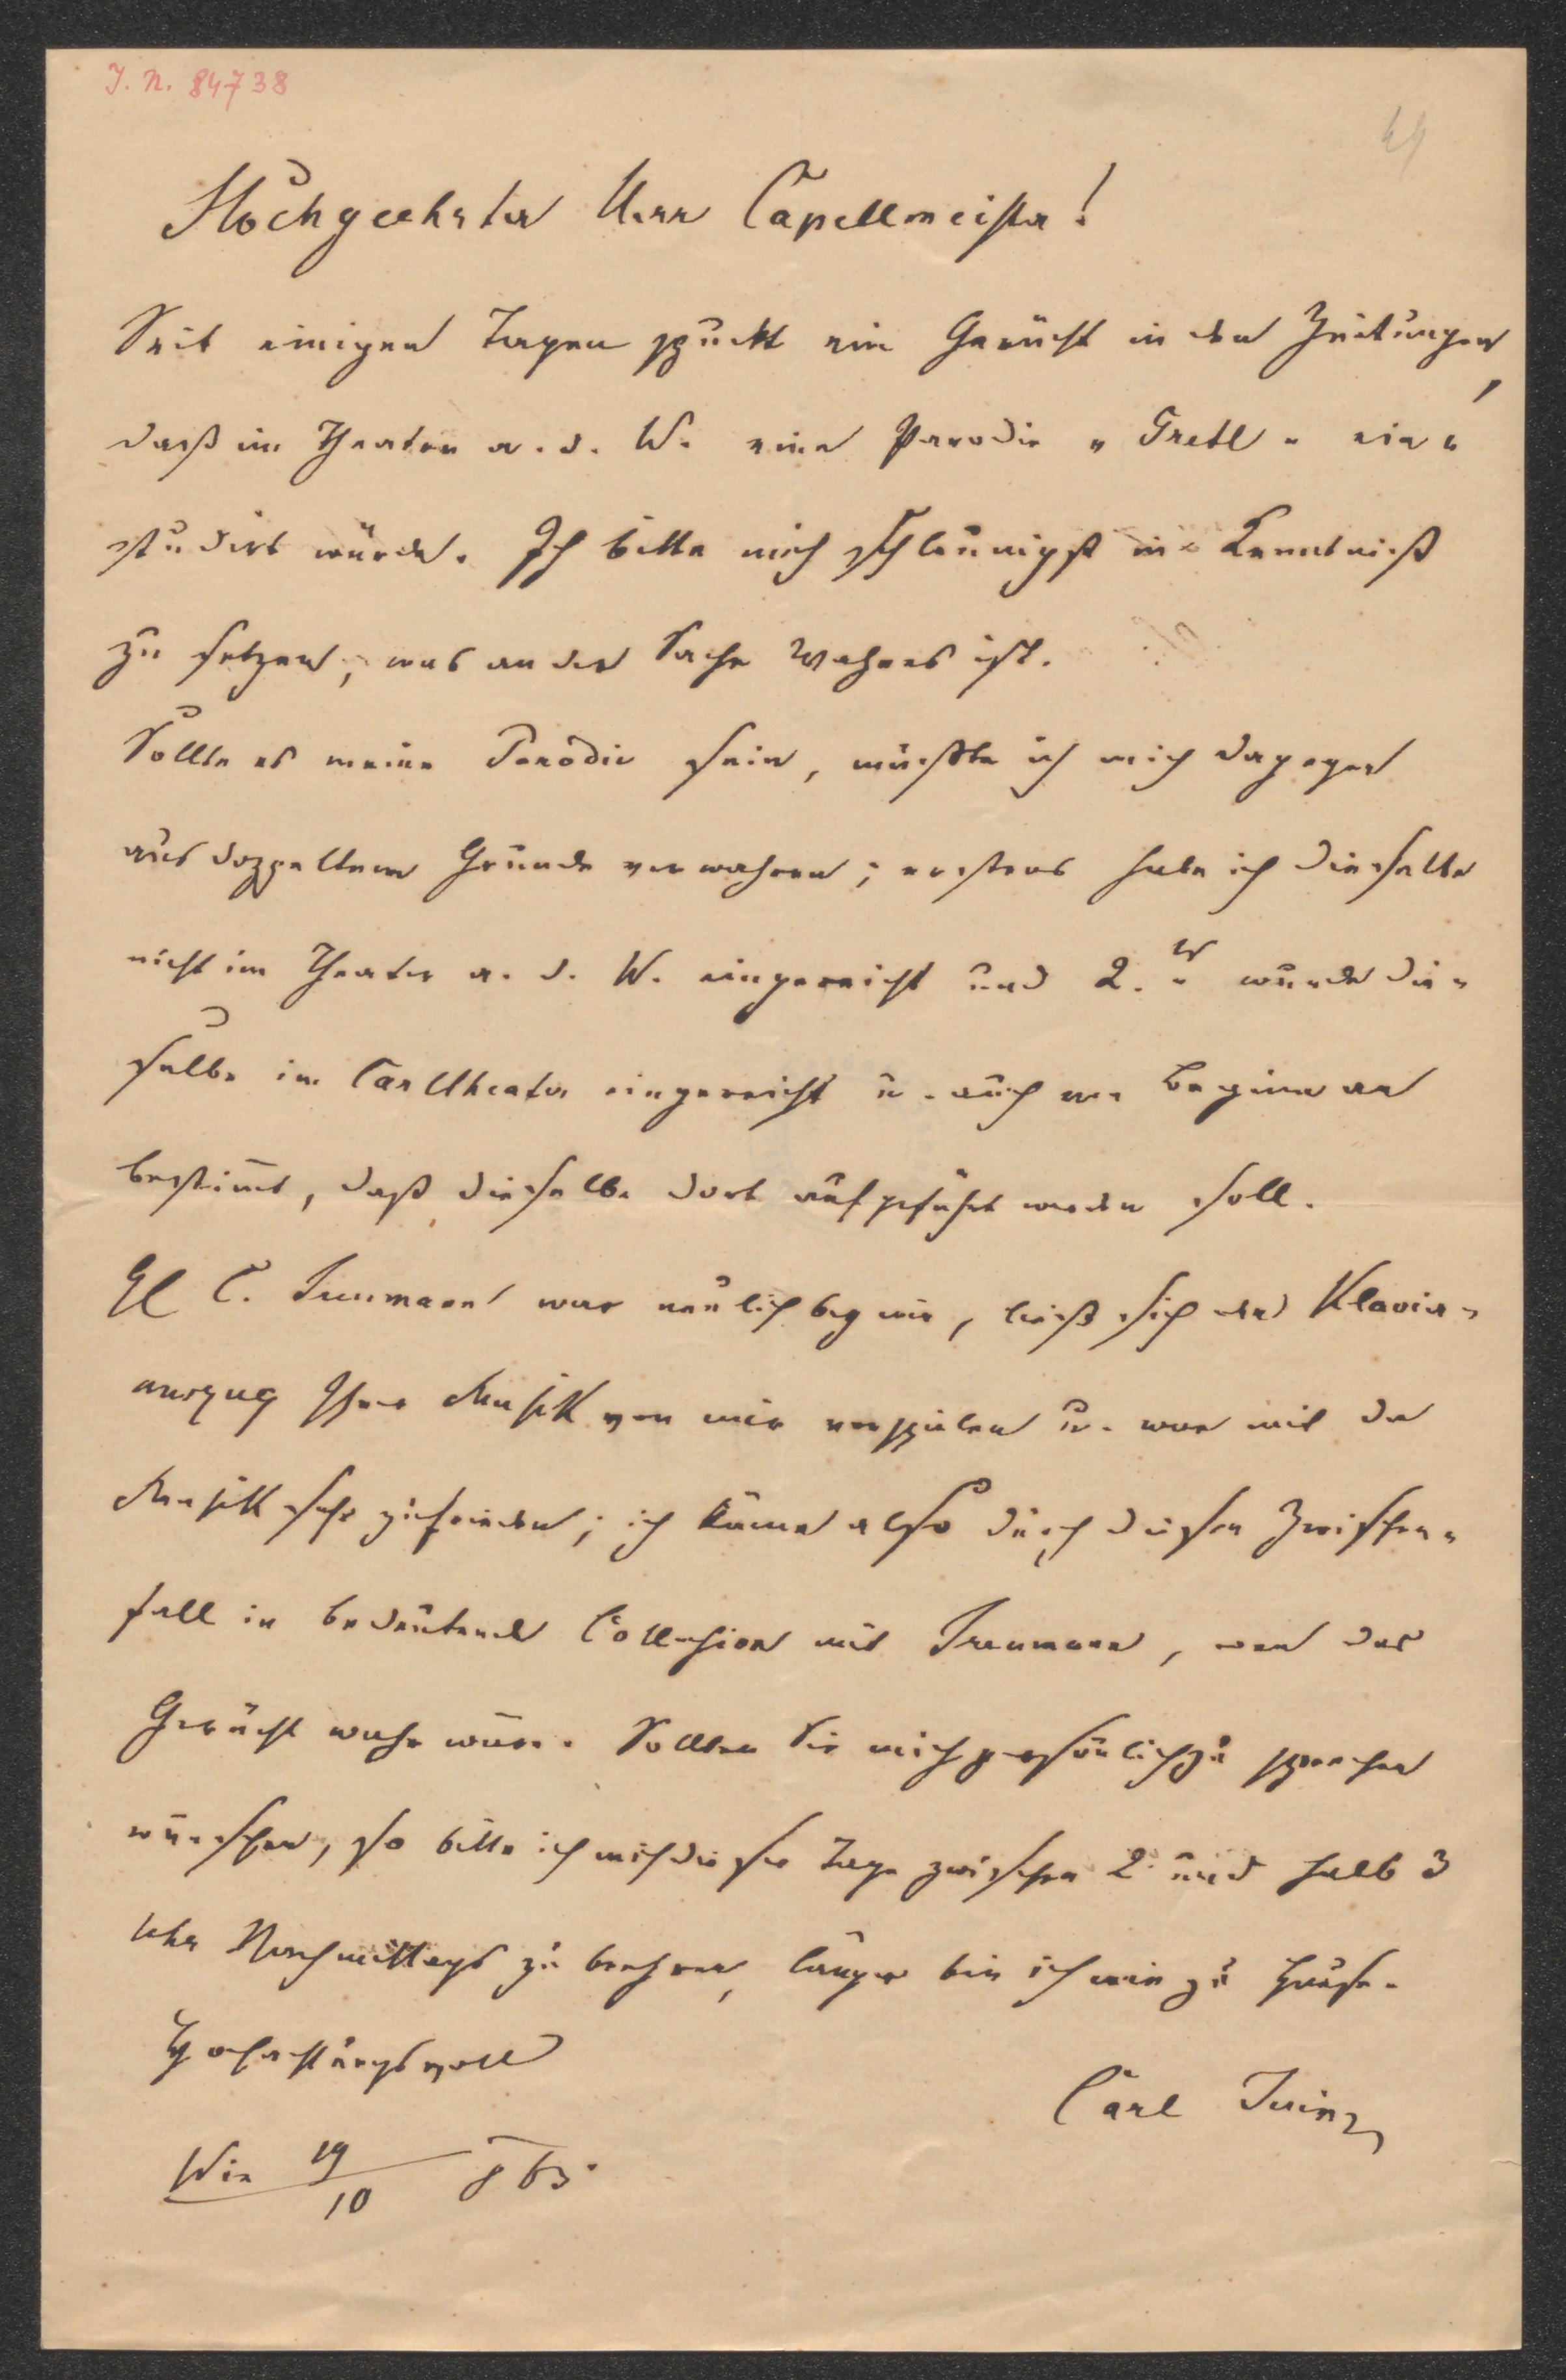 J. N. 84738
Hochgeehrter Herr Capellmeister!
Seit einigen Tagen spuckt ein Gerücht in den Zeitungen,
daß im Theater a. d. W. eine Parodie „Gretl" ein„
studirt würde. Ich bitte mich schleunigst in Kenntniß
zu setzen, was an der Sache Wahres ist.
Sollte es meine Parodie sein, müßte ich mich dagegen
aus doppeltem Grunde verwahren; erstens habe ich dieselbe
nicht im Theater a. d. W. eingereicht und 2. wurde die„
selbe im Carltheater eingereicht u. auch von Beginn an
bestimt, daß dieselbe dort aufgeführt werden soll.
H C. Treumann war neulich bey mir, ließ sich den Klavier„
auszug Ihrer Musik von mir vorspielen u. war mit der
Musik sehr zufrieden; ich käme also durch diesen Zwischen„
fall in bedeutende Collision mit Treumann, wen das
Gerücht wahr wäre. Sollten Sie mich persönlich zu sprechen
wünschen, so bitte ich mich dieser Tage zwischen 2 und halb 3
Uhr Nachmittags zu beehren, länger bin ich nie zu Hause.
Hochachtungsvoll
Carl
Wien 19/10 863.